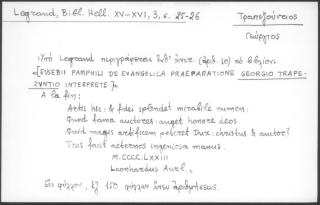 Legrand, Bibl. Hell. XV-XVI, 3, σ. 25-26
Τραπεζούντιος
Γεώργιος
Ὑπὸ Legrand περιγράφεται (ἀρ. 10) τὸ βιβλίον
«[EVSEBII PAMPHILI DE EVANGELICA PRAEPARATIONE GEORGIO TRAPE-
ZVNTIO INTERPRETE.]»
A la fin:
Artis hec: & fidei splendet mirabile numen:
Quod fama auctores: auget honore deos
Quid magis artificem peteret Dux: christus & auctor?
Tres facit aeternos ingeniosa manus.
M.CCCC.LXXIII
Leonhardus Aurl.»
Εἰς φύλλον, 150 φύλλων ἄνευ ἀριθμήσεως.